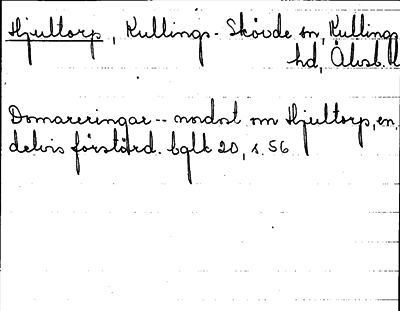 Hjultorp, Kullings-Skövde sn, Kullings
hd, Älvsb. ll
Domareringar -- nordost om Hjultorp, en
delvis förstörd. bglt 20, s. 56